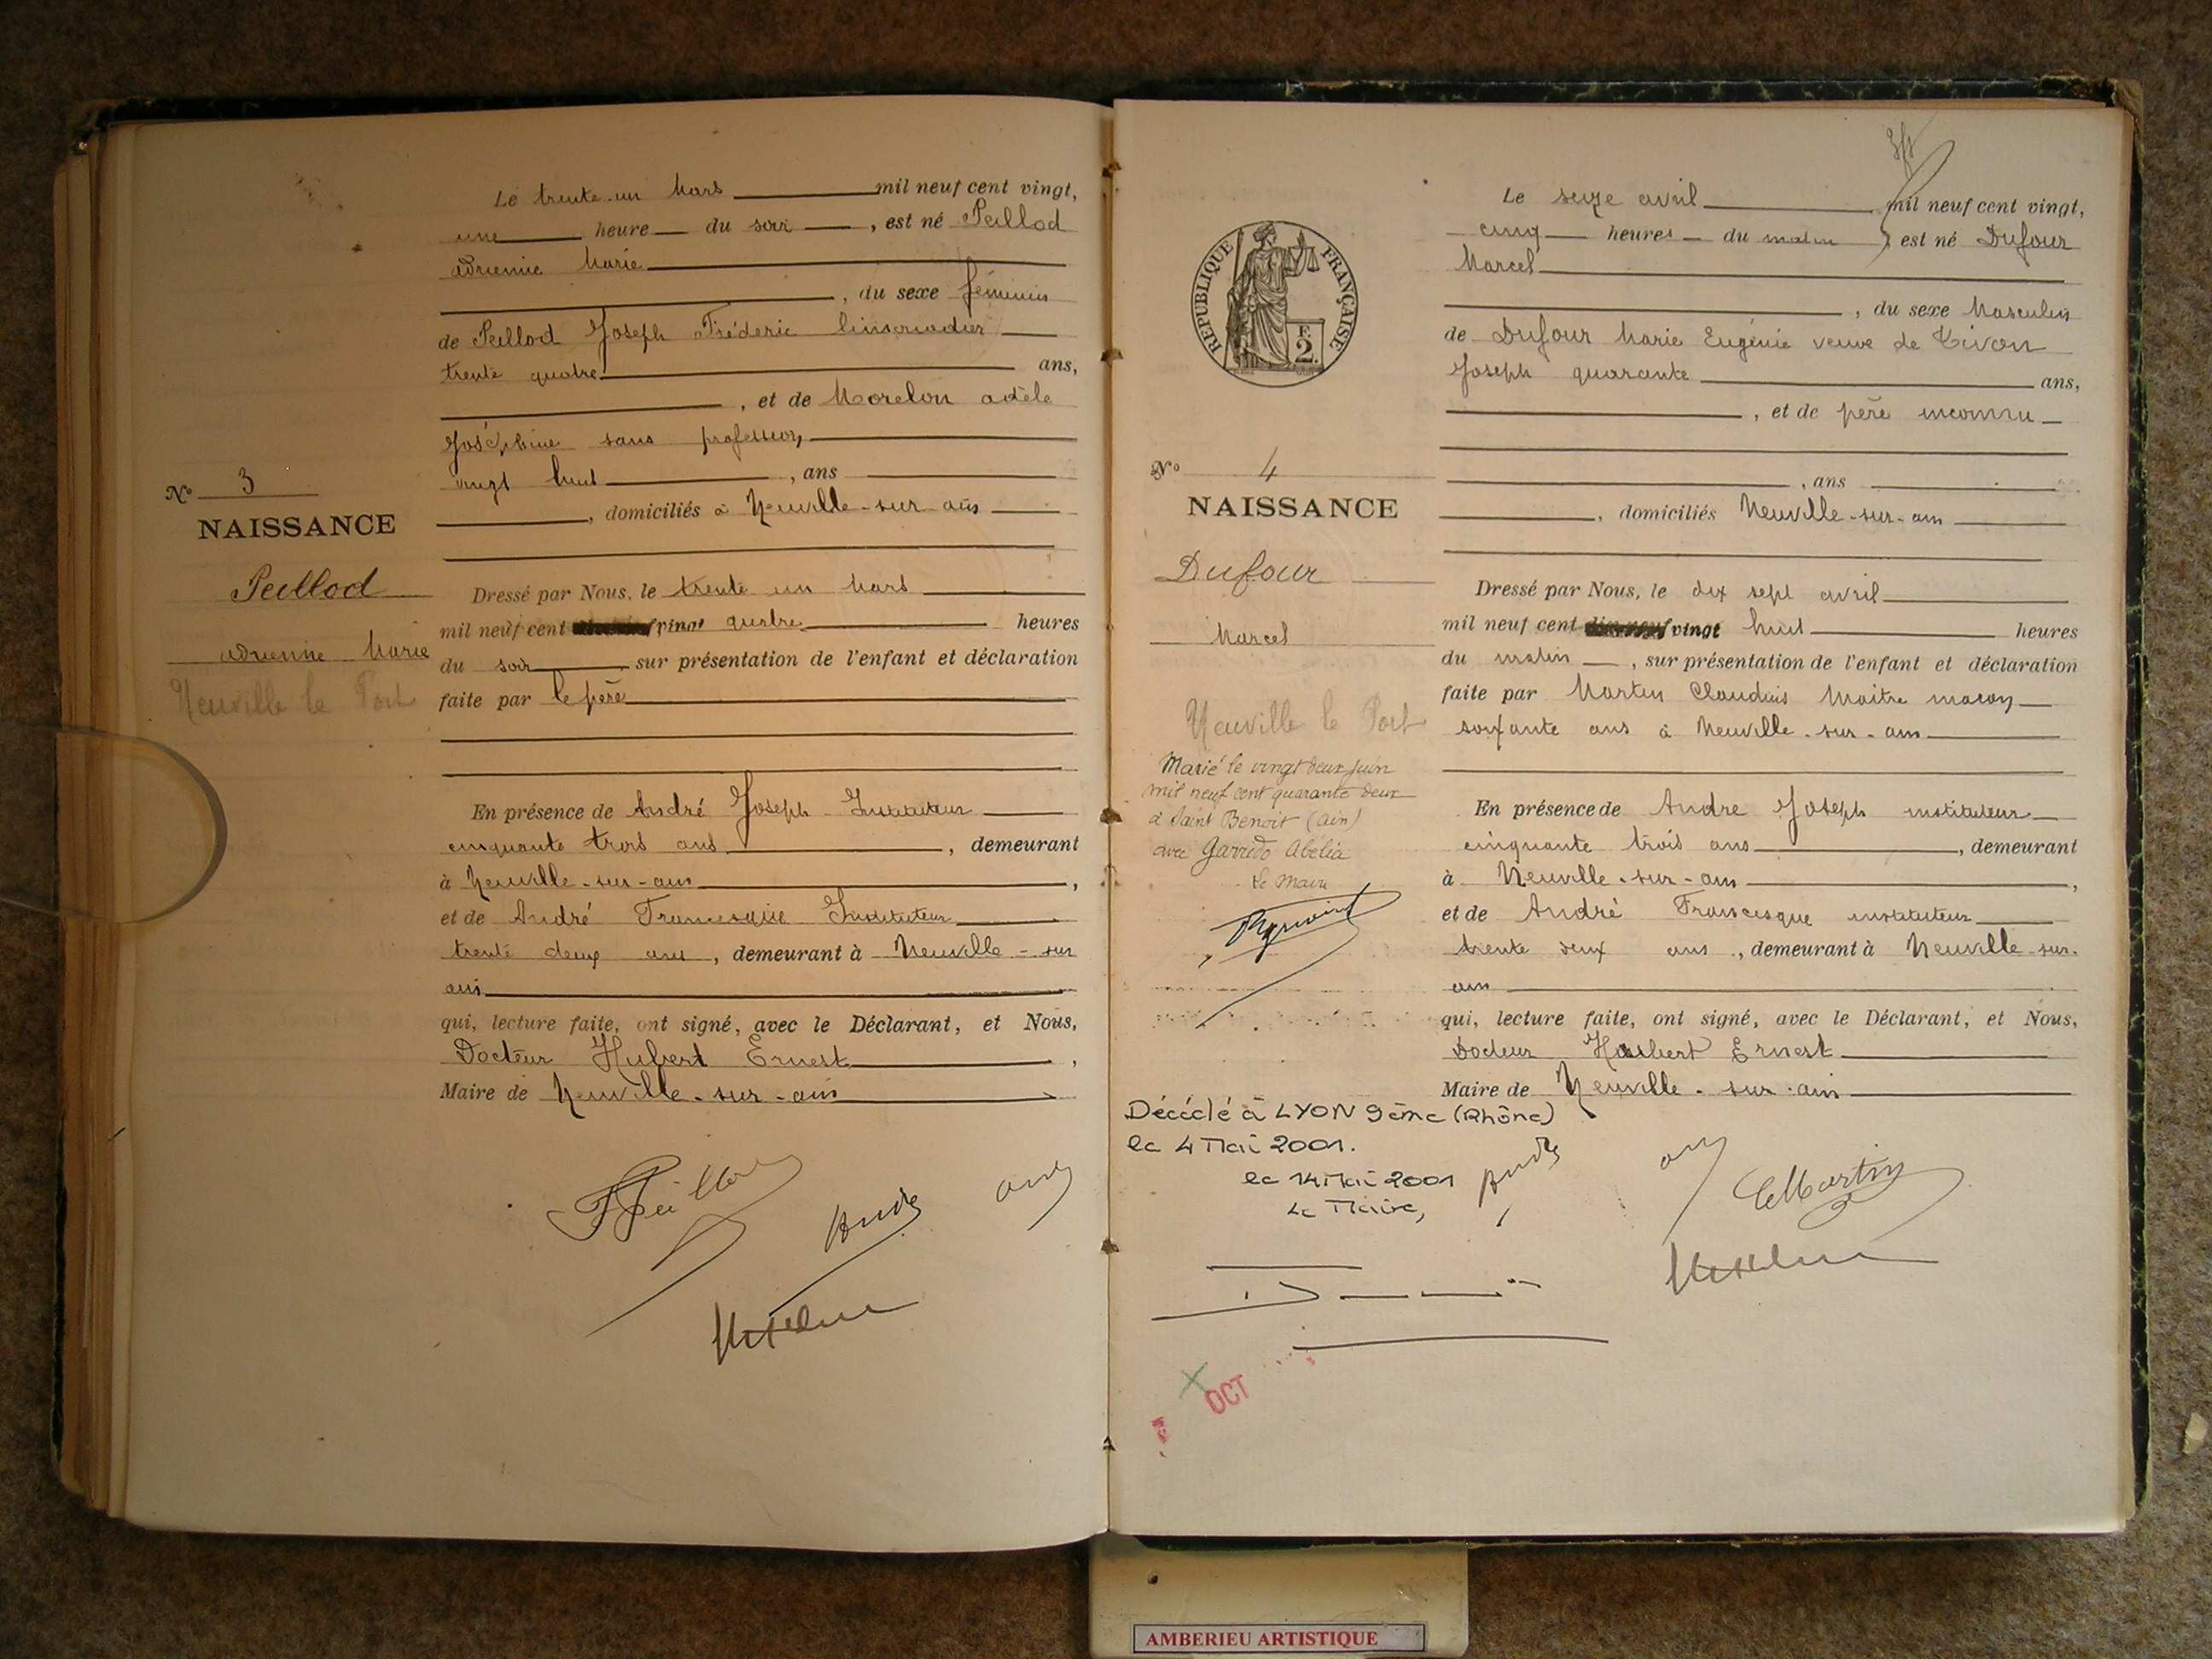 Le trente-un Mars mil neuf cent vingt,
une heure du soir, est né Peillod
Adrienne Marie
, du sexe féminin
de Peillod Joseph Fréderic
trente quatre ans,
, et de Morelon Adèle
Joséphine sans profession
vingt huit, ans
, domiciliés à Neuville-sur-ain
No 3
NAISSANCE
Peillod
Adrienne Marie
Neuville le Port
Dressé par Nous, le trente un Mars
mil neuf cent vingt quatre heures
du soir, sur présentation de l'enfant et déclaration
faite par le père
En présence de André Joseph Instituteur
cinquante trois ans, demeurant
à Neuville-sur-ain,
et de André Francisque Instituteur
trente deux ans, demeurant à Neuville-sur
ain
qui, lecture faite, ont signé, avec le Déclarant, et Nous,
Docteur Hubert Ernest,
Maire de Neuville-sur-ain
André
REPUBLIQUE FRANÇAISE
F.
2.
Le seize avril mil neuf cent vingt,
cinq heures du matin, est né Dufour
Marcel
, du sexe Masculin
de Dufour Marie Eugénie veuve de
Joseph quarante ans,
, et de père inconnu
, ans
, domiciliés Neuville-sur-ain
No 4
NAISSANCE
Dufour
Marcel
Neuville le Port
Marié le vingt deux juin
mil neuf cent quarante deux
à Saint Benoit (Ain)
avec Garrido Abélia
Le Maire
Dressé par Nous, le dix sept avril
mil neuf cent vingt huit heures
du matin, sur présentation de l'enfant et déclaration
faite par Martin Claudius Maitre maçon
soixante ans à Neuville-sur-ain
En présence de Andre Joseph instituteur
cinquante trois ans, demeurant
à Neuville-sur-ain,
et de André Francisque instituteur
trente deux ans, demeurant à Neuville-sur-
ain
qui, lecture faite, ont signé, avec le Déclarant, et Nous,
Docteur Hubert Ernest
Maire de Neuville-sur-ain
Décédé à LYON 9ème (Rhône)
le 4 Mai 2001.
le 14 Mai 2001
Le Maire,
André
Martin
OCT
AMBERIEU ARTISTIQUE